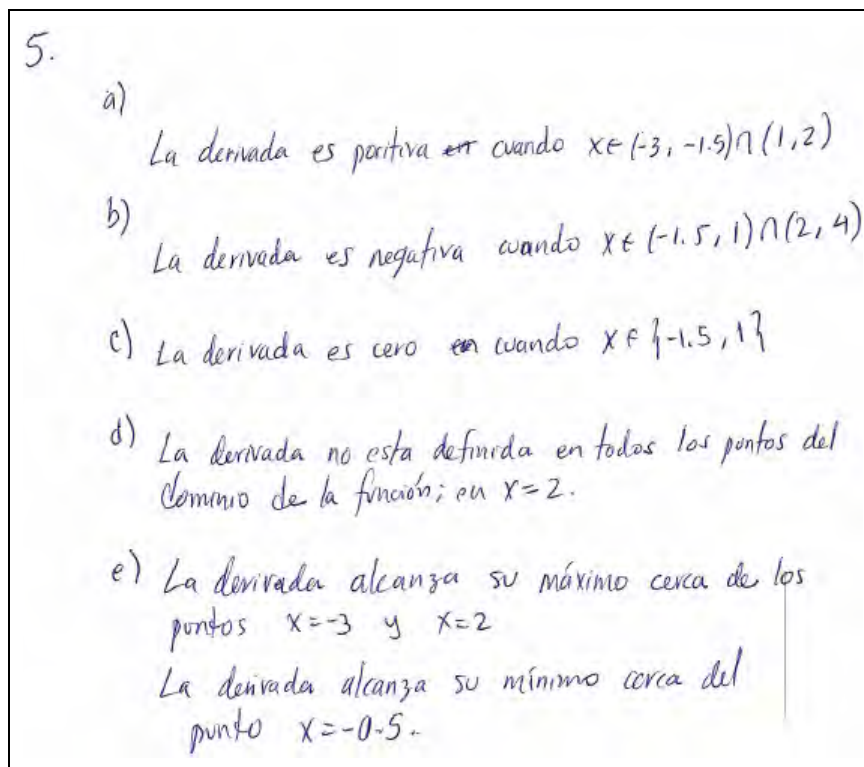 5.
a)
La derivada es positiva cuando x∈(-3, -1.5)∩(1,2)
b)
La derivada es negativa cuando x∈(-1.5, 1)∩(2, 4)
c) La derivada es cero cuando x∈{-1.5, 1}
d) La derivada no esta definida en todos los puntos del
dominio de la función; en x=2.
e) La derivada alcanza su máximo cerca de los
puntos x=-3 y x=2
La derivada alcanza su mínimo cerca del
punto x=-0.5.